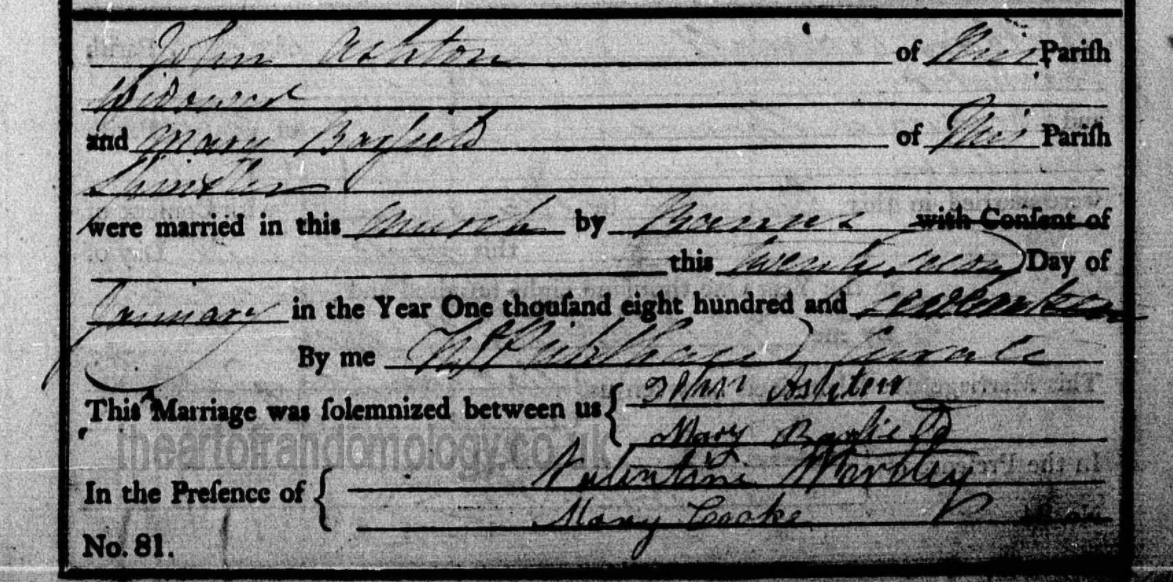 John Ashton of this Pariſh
Widower
and Mary Bayfield of this Pariſh
Spinster
were married in this Church by Banns with Conſent of
this twenty second Day of
January in the Year One thouſand eight hundred and
By me Curate
This Marriage was ſolemnized between us { John Ashton
Mary Bayfield
theartofrandomology.co.uk
In the Preſence of { Valentine Wortley
Mary Cooke
No. 81.